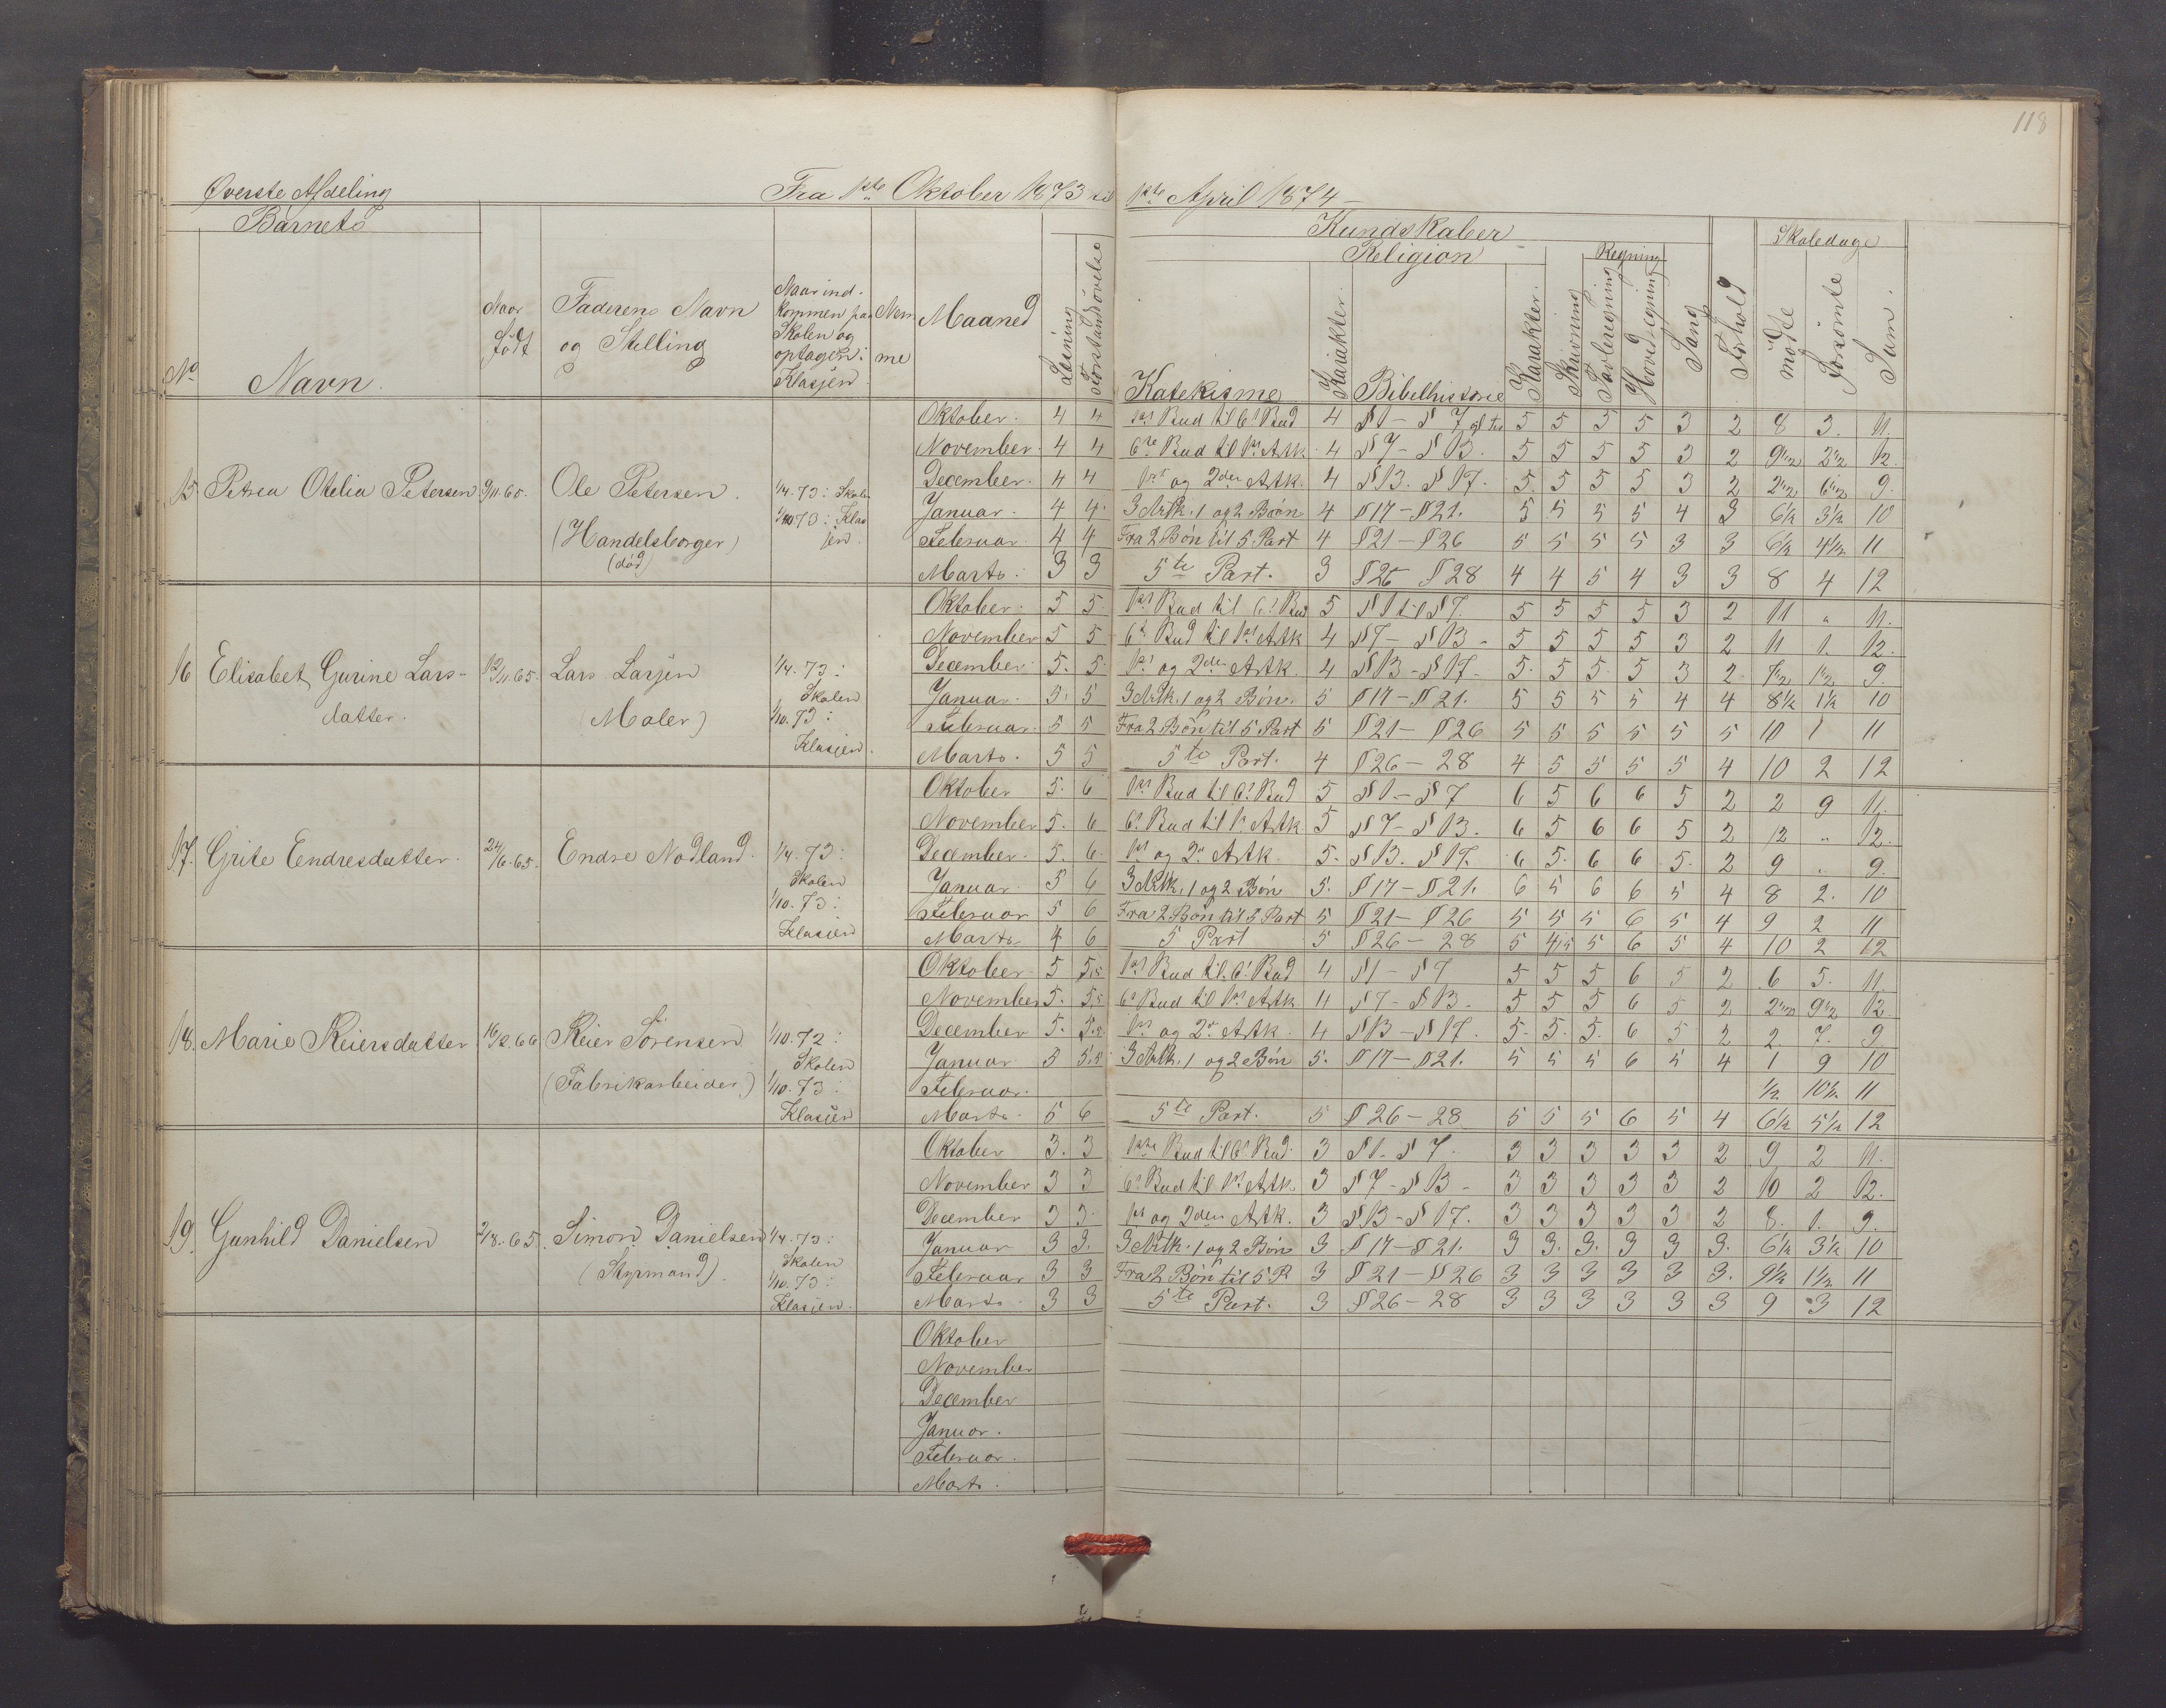 118
Øverste Afdeling Fra 1ste Oktober 1873 til 1ste April 1874 –
Barnets Kundskaber Skoledage
Religion Regning
No Navn. Naar født Faderens Navn og Stilling Naar ind- kommen paa Skolen og optagen i Klassen. Maaned Læsning Forstandsøvelse Katekisme Karakter. Bibelhistorie Karakter. Skrivning Tavleregning Hovedregning Sang Forhold mødte Forsømte Sum.
Oktober. 4 4 1ste Bud til 6te Bud 4 § 1 – § 7 5 5 5 5 3 2 8 3. 11.
November. 4 4 6te Bud til 1ste Artk 4 § 7 – § 13. 5 5 5 5 3 2 9 1/2 2 1/2 12.
15 Petrea Otelia Petersen 9/11.65. Ole Petersen. 1/4.73: Skolen December. 4 4 1ste og 2den Artk. 4 § 13. § 17. 5 5 5 5 3 2 2 1/2 6 1/2 9.
1/10.73: Klas Januar. 4 4. 3 Artk. 1 og 2 Bøn 4 § 17 – § 21. 5 5 5 5 4 3 6 1/2 3 1/2 10
(Handelsborger) sen. Februar 4 4 Fra 2 Bøn til 5 Part 4 § 21 – § 26 5 5 5 5 3 3 6 1/2 4 1/2 11
(død) Marts. 3 3 5te Part. 3 § 26 § 28 4 4 5 4 3 3 8 4 12
Oktober. 5 5. 1ste Bud til 6te Bud 5 § 1 til § 7. 5 5 5 5 3 2 11 „ 11.
November 5 5 6te Bud til 1ste Artk 4 § 7 – § 13 – 5 5 5 5 3 2 11 1. 12.
16 Elisabet Gurine Lars- 12/11.65. Lars Larsen 1/4.73: December 5. 5. 1ste og 2den Artk. 4 § 13 – § 17. 5. 5 5 5 3 2 7 1/2 1 1/2 9.
datter. (Maler) Skolen Januar. 5. 5 3 Artk. 1 og 2 Bøn. 5 § 17 – § 21. 5 5 5 5 4 4 8 1/2 1 1/2 10
1/10.73: Februar. 5 5 Fra 2 Bøn til 5 Part 5 § 21 – § 26 5 5 5 5 5 5 10 1 11
Klassen. Marts. 5 5 5te Part. 4 § 26 – 28 4 5 5 5 5 4 10 2 12
Oktober 5. 6 1ste Bud til 6te Bud 5 § 1 – § 7 6 5 6 6 5 2 2 9 11.
November 5. 6 6te Bud til 1ste Artk 5 § 7 – § 13. 6 5 6 6 5 2 12 „ 12.
17. Grite Endresdatter. 24/6.65. Endre Nodland. 1/4.73: December. 5. 6. 1ste og 2den Artk. 5. § 13. § 17. 6 5. 6 6 5. 2 9 „ 9.
Skolen Januar. 5 6 3 Artk. 1 og 2 Bøn 5. § 17 – § 21. 6 5 6 6 5 4 8 2. 10
1/10.73: Februar 5 6 Fra 2 Bøn til 5 Part 5 § 21 – § 26 5 5 5 6 5 4 9 2 11
Klassen Marts 4 6 5 Part 5 § 26 – 28 5 4,5 5 6 5 4 10 2 12
Oktober 5 5,5 1ste Bud til 6te Bud 4 § 1 – § 7 5 5 5 6 5 2 6 5. 11.
November 5. 5,5 6te Bud til 1ste Artk 4 § 7 – § 13 – 5 5 5 6 5 2 2 1/2 9 1/2 12.
18. Marie Reiersdatter 16/2.66 Reier Sørensen 1/10.72: December 5. 5,5 1ste og 2den Artk. 4 § 13 – § 17. 5. 5. 5. 6 5 2 2. 7. 9.
Skolen Januar 5 5,5 3 Artk. 1 og 2 Bøn 5. § 17 – § 21. 5 5 5 6 5 4 1 9 10
(Fabrikarbeider) 1/10.73: Februar. 1/2 10 1/2 11
Klassen Marts. 5 6 5te Part. 5 § 26 – 28 5 5 5 6 5 4 6 1/2 5 1/2 12
Oktober 3. 3 1ste Bud til 6te Bud. 3 § 1. § 7. 3 3 3 3 3 2 9 2 11.
November 3 3 6te Bud til 1ste Artk. 3 § 7 – § 13 – 3 3 3 3 3 2 10 2 12.
19. Gunhild Danielsen 2/8.65. Simon Danielsen 1/4.73: December 3 3. 1ste og 2den Artk. 3 § 13 – § 17. 3 3 3 3 3 2 8. 1. 9.
Skolen Januar 3 3. 3 Artk. 1 og 2 Bøn 3 § 17 – § 21. 3 3. 3. 3 3 3. 6 1/2 3 1/2 10
(Styrmand). 1/10.73: Februar 3 3 Fra 2 Bøn til 5 P 3 § 21 – § 26 3 3 3 3 3 3. 9 1/2 1 1/2 11
Klassen. Marts. 3 3 5te Part. 3 § 26 – 28 3 3 3 3 3 3 9 3 12
Oktober
November
December
Januar.
Februar.
Marts.